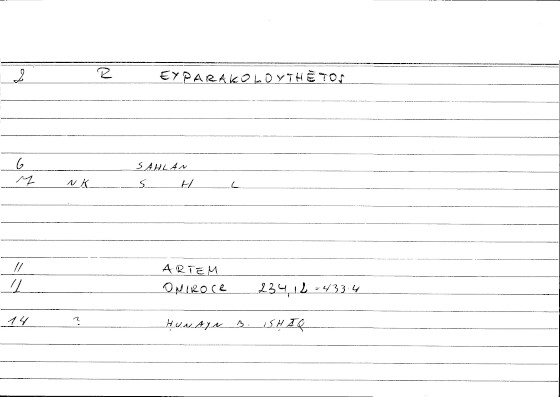 2 R EYPARAKOLOYTHĒTOS
6 SAHLAN
NK S H L
11 ARTEM
11 ONIROCR 234,12 = 433.4
14 ? HUNAYN B. ISHĀQ